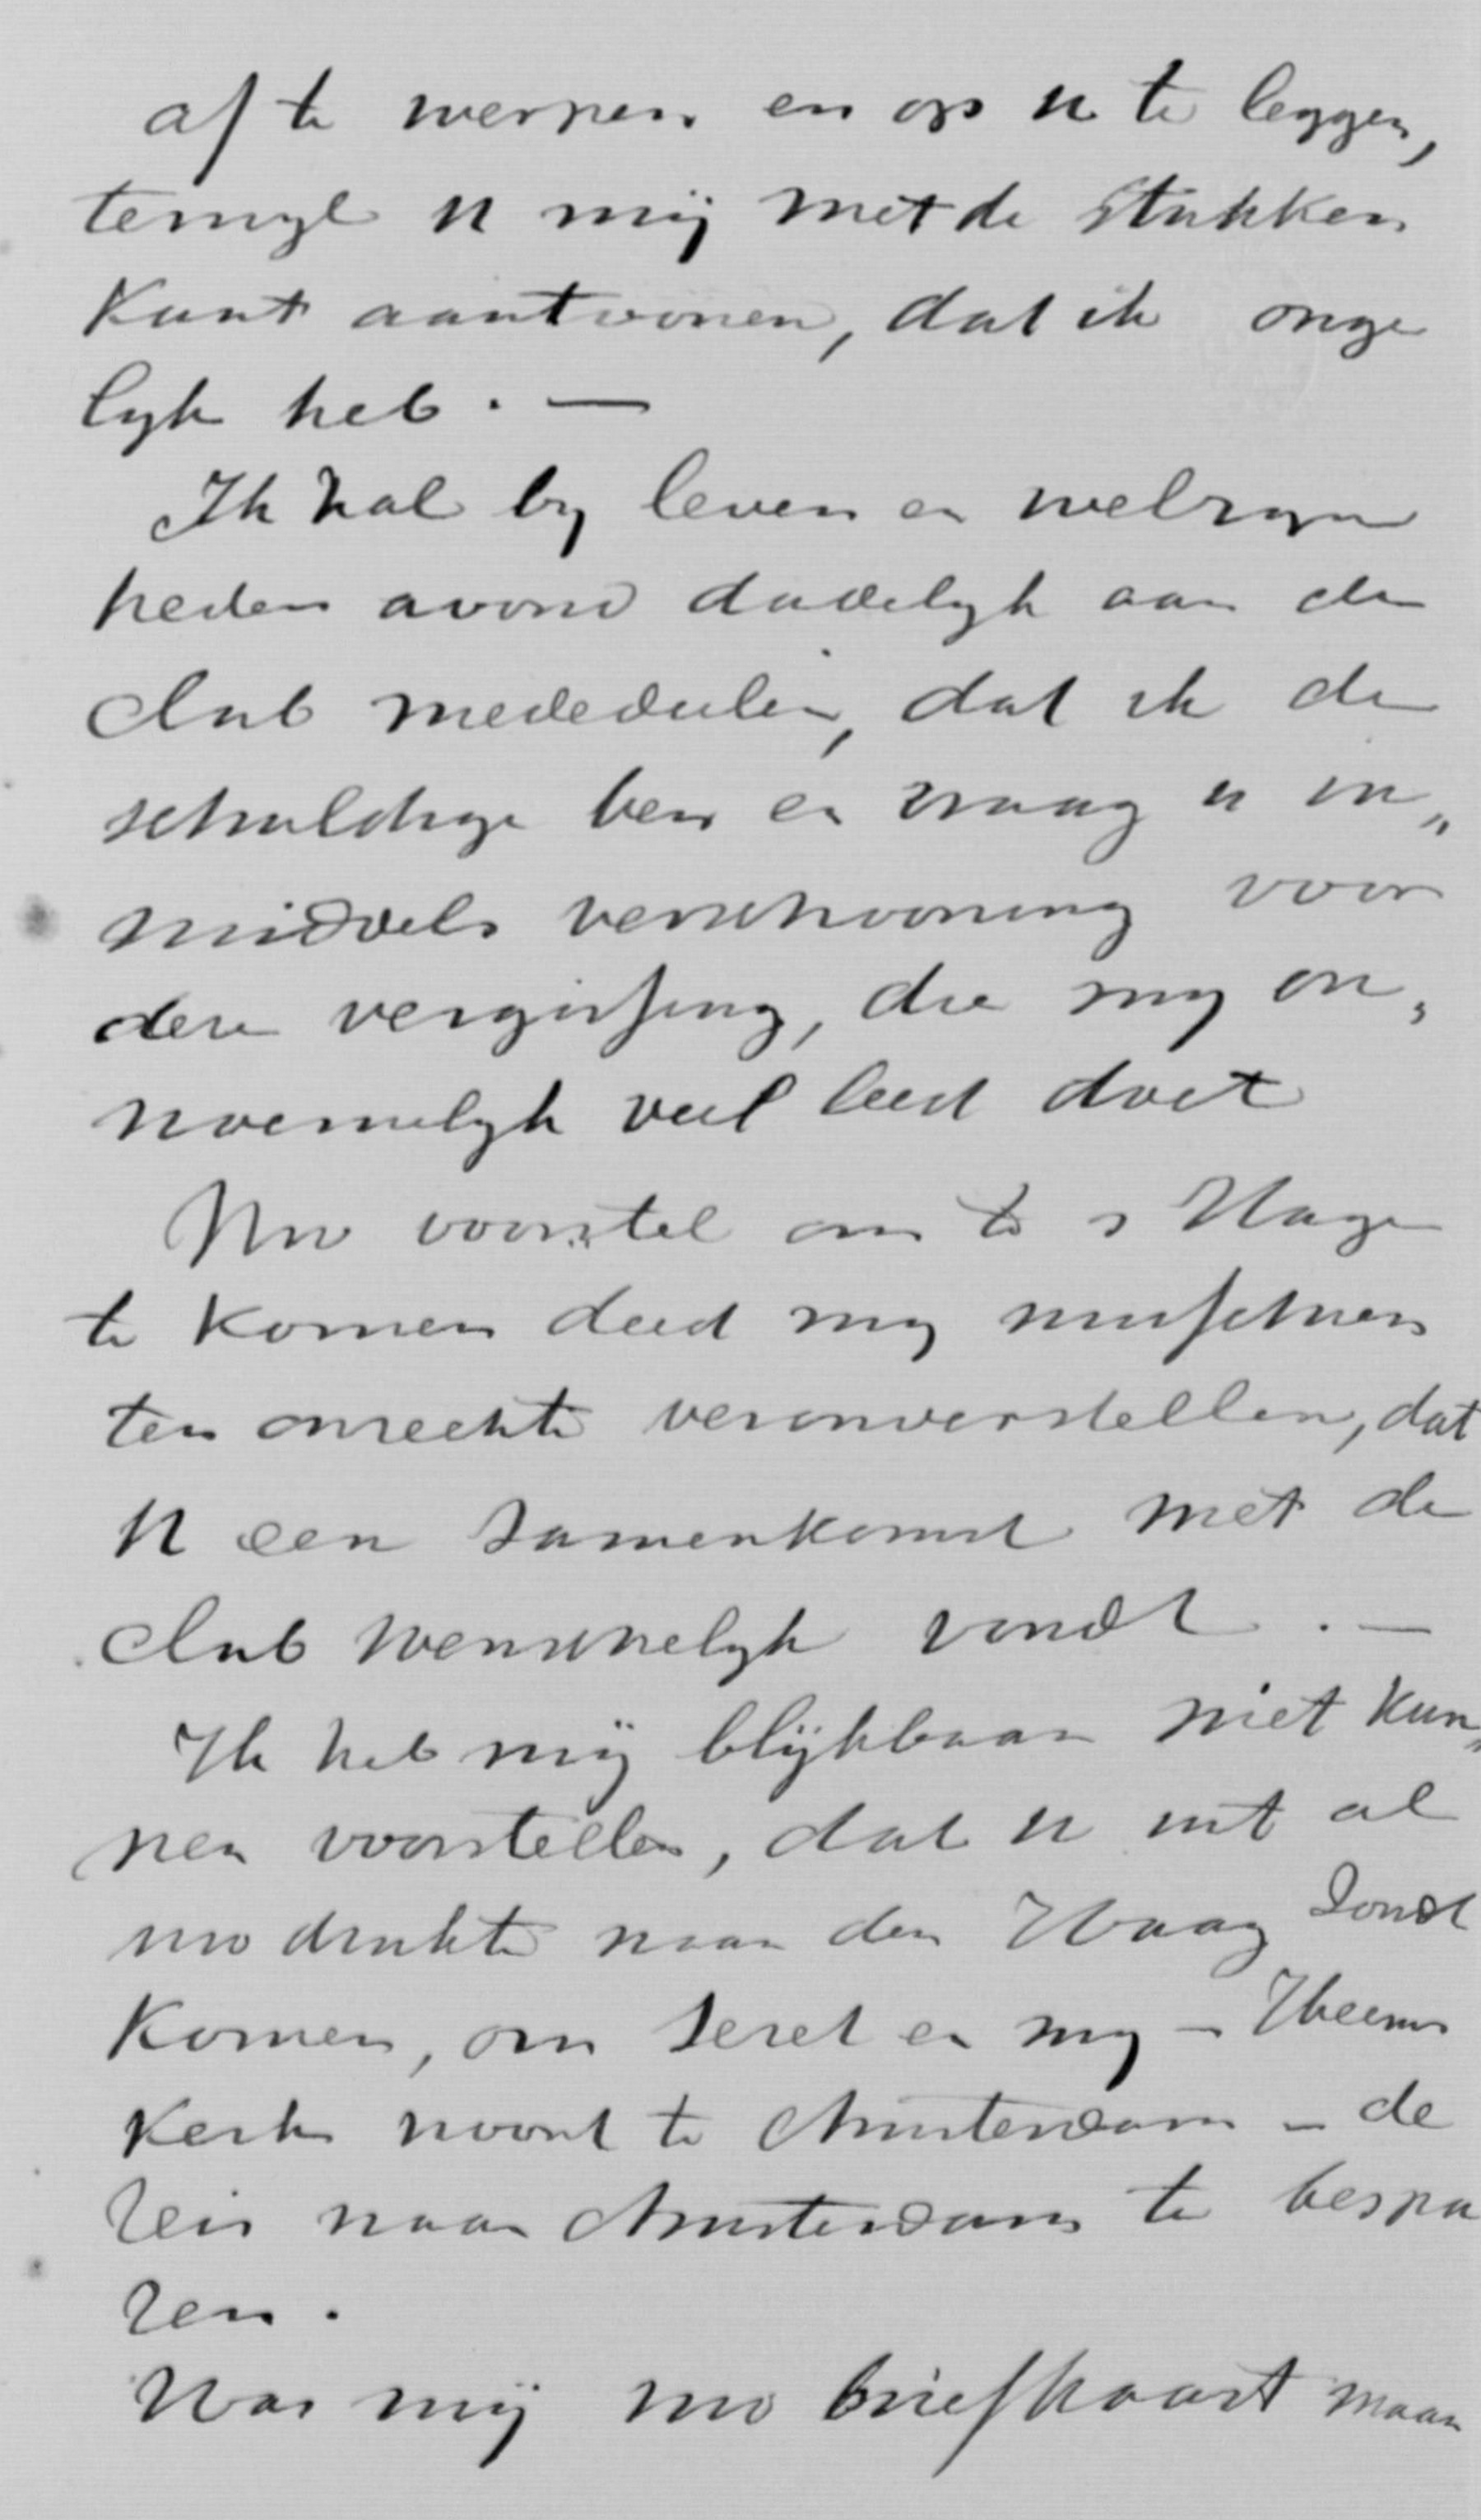 af te werpen en op U te leggen,
terwyl U mij met de stukken
kunt aantoonen, dat ik onge
lyk heb. —
Ik zal by leven en welzyn
heden avond dadelyk aan de
club mededeelen, dat ik de
schuldige ben en vraag U in„
middels verschooning voor
deze vergissing, die my on„
noemelyk veel leed doet
Uw voorstel om te s Hage
te komen deed my misschien
ten onrechte veronderstellen, dat
U een samenkomst met de
club wenschelyk vondt. —
Ik heb mij blijkbaar niet kun„
nen voorstellen, dat U uit al
uw drukte naar den Haag zoudt
komen, om Seret en my – Heems
kerk woont te Amsterdam – de
reis naar Amsterdam te bespa
ren.
Was mij uw briefkaart maar